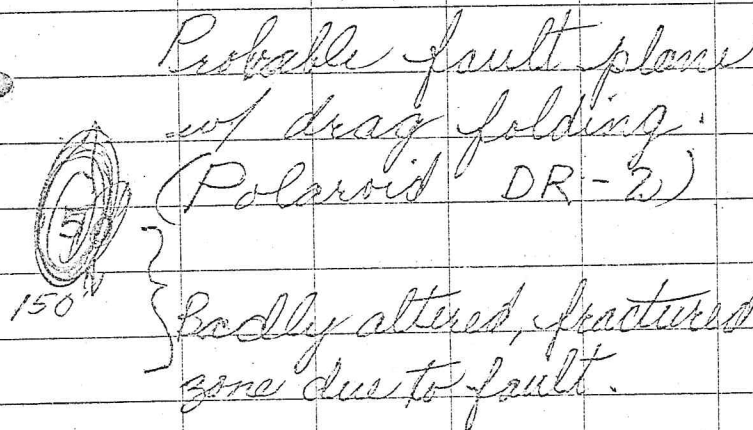 Probable fault plane
w/ drag folding.
(Polaroid DR-2)
150'
Badly altered, fractured
zone due to fault.